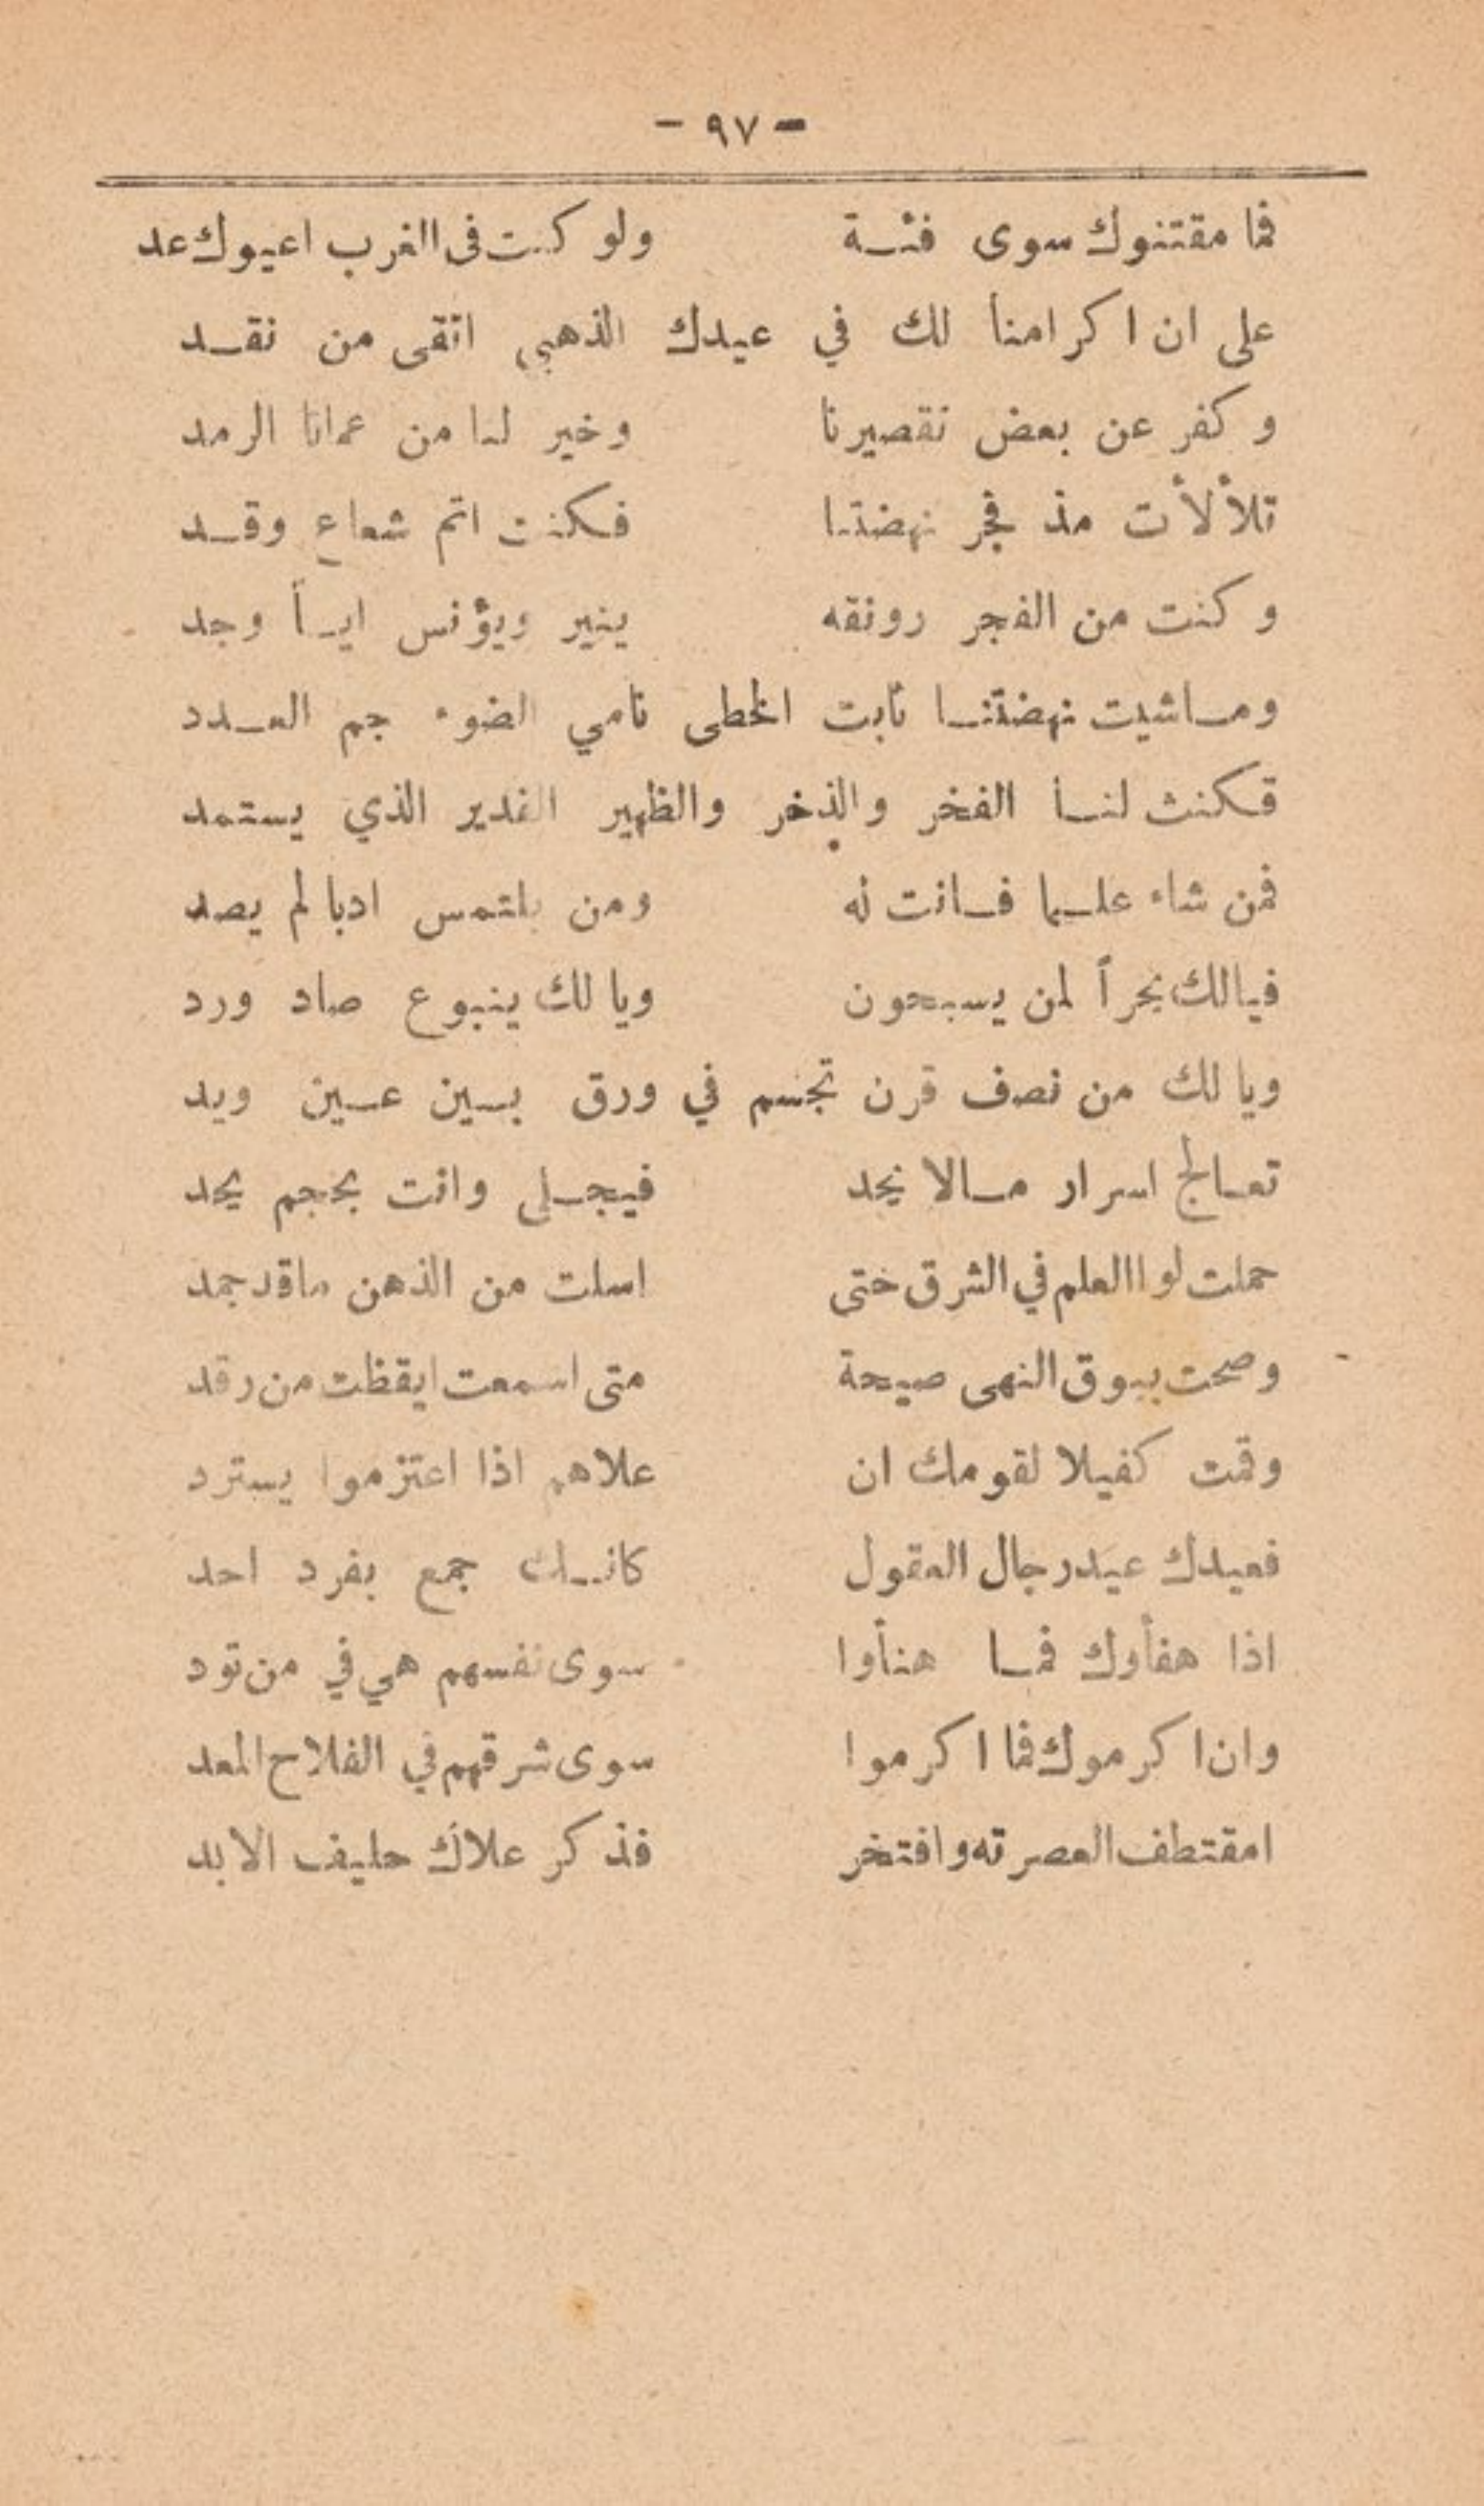 - ٩٧ -
فما مقتنوك سوى فئة ولو كنت فى الغرب اعيوك عد
على ان اكرامنا لك في عيدك الذهبي اتقى من نقد
وكفر عن بعض تقصيرنا وخير لنا من عمانا الرمد
تلألأت مذ فجر نهضتنا فكنت اتم شعاع وقد
وكنت من الفجر رونقه ينير ويؤنس ايـاً وجد
وماشيت نهضتنا ثابت الخطى نامي الضوء جم العدد
فكنت لنا الفخر والذخر والظهير الغدير الذي يستمد
فمن شاء علما فانت له ومن يلتمس ادبا لم يصد
فيالك بحراً لمن يسبحون ويا لك ينبوع صاد ورد
ويا لك من نصف قرن تجسم في ورق بين عين ويد
تعالج اسرار مالا يحد فيجلى وانت بحجم يحد
حملت لوا العلم في الشرق ختى اسلت من الذهن ماقد جمد
وصحت ببوق النهى صيحة متى اسمعت ايقظت من رقد
وقمت كفيلا لقومك ان علاهم اذا اعتزموا يسترد
فعيدك عيد رجال العقول كانك جمع بفرد احد
اذا هنأوك فما هنأوا سوى نفسهم هي في من تود
وان اكرموك فما اكرموا سوى شرقهم في الفلاح المعد
امقتطف العصر ته وافتخر فذكر علاك حليف الابد